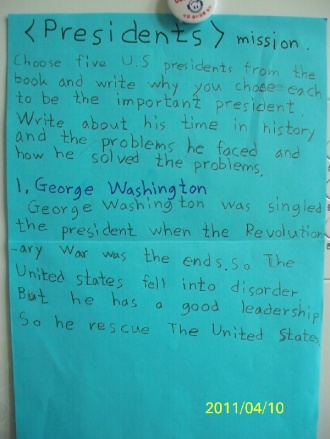 <Presidents> mission.
Choose five U.S presidents from the
book and write why you chose each
to be the important president.
Write about his time in history
and the problems he faced and
how he solved the problems.
1, George Washington
George Washington was singled
the president when the Revolution
-ary War was the ends. So The
United states fell into disorder
But he has a good leadership
So he rescue The United States
2011/04/10